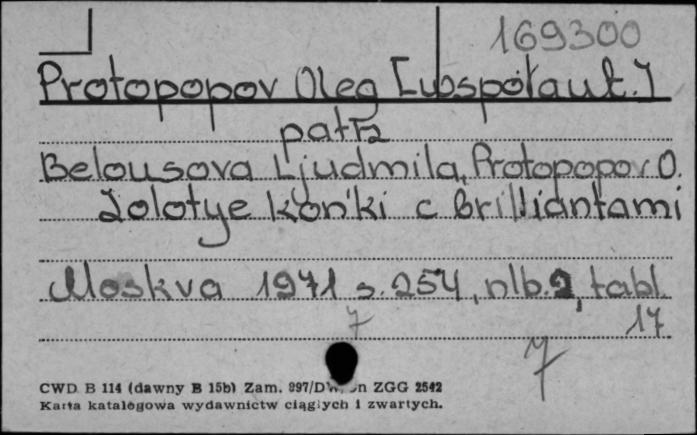 169300
Protopopov Oleg [współaut.]
patrz
Belousova Ljudmila, Protopopov O.
Zolotye kon'ki c brilliantami
Moskva 1971 s. 254, nlb. 2, tabl.
17
7
7
CWD B 114 (dawny B 15b) Zam. 997/DW, ZGG 2542
Karta katalogowa wydawnictw ciągłych i zwartych.